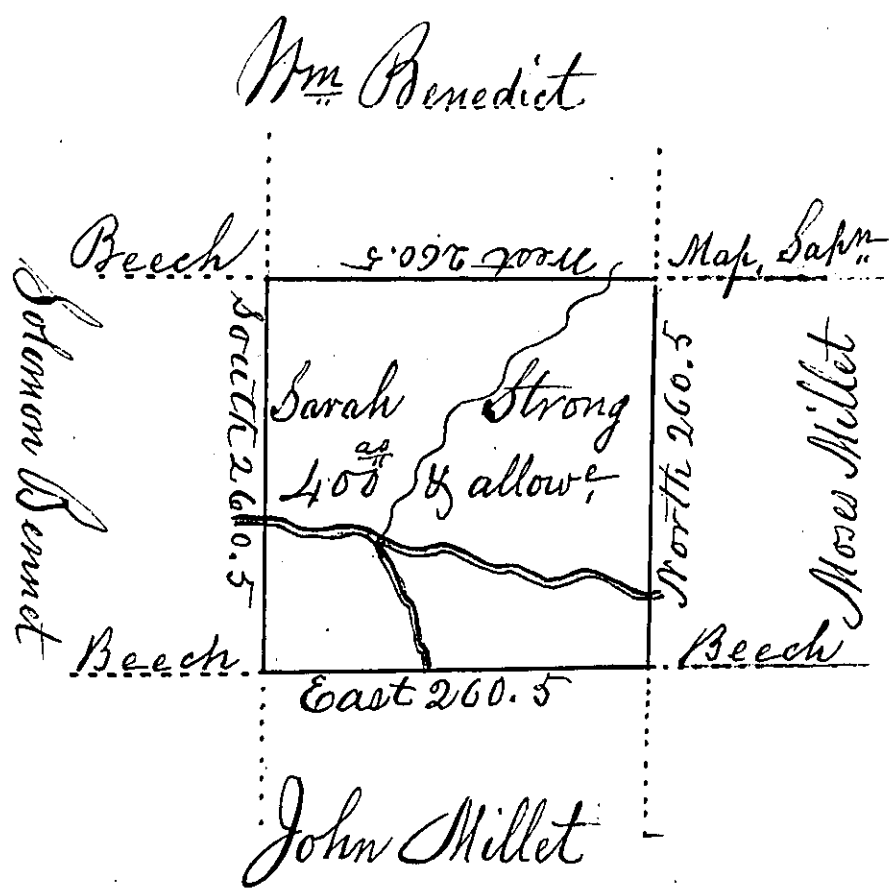 Wm Benedict
Beech
West 260.5
Map. Sapn
Solomon Bennet
South 260.5
Sarah Strong
400 as & allowe
North 260.5
Moses Millet
Beech
Beech
East 260.5
John Millet